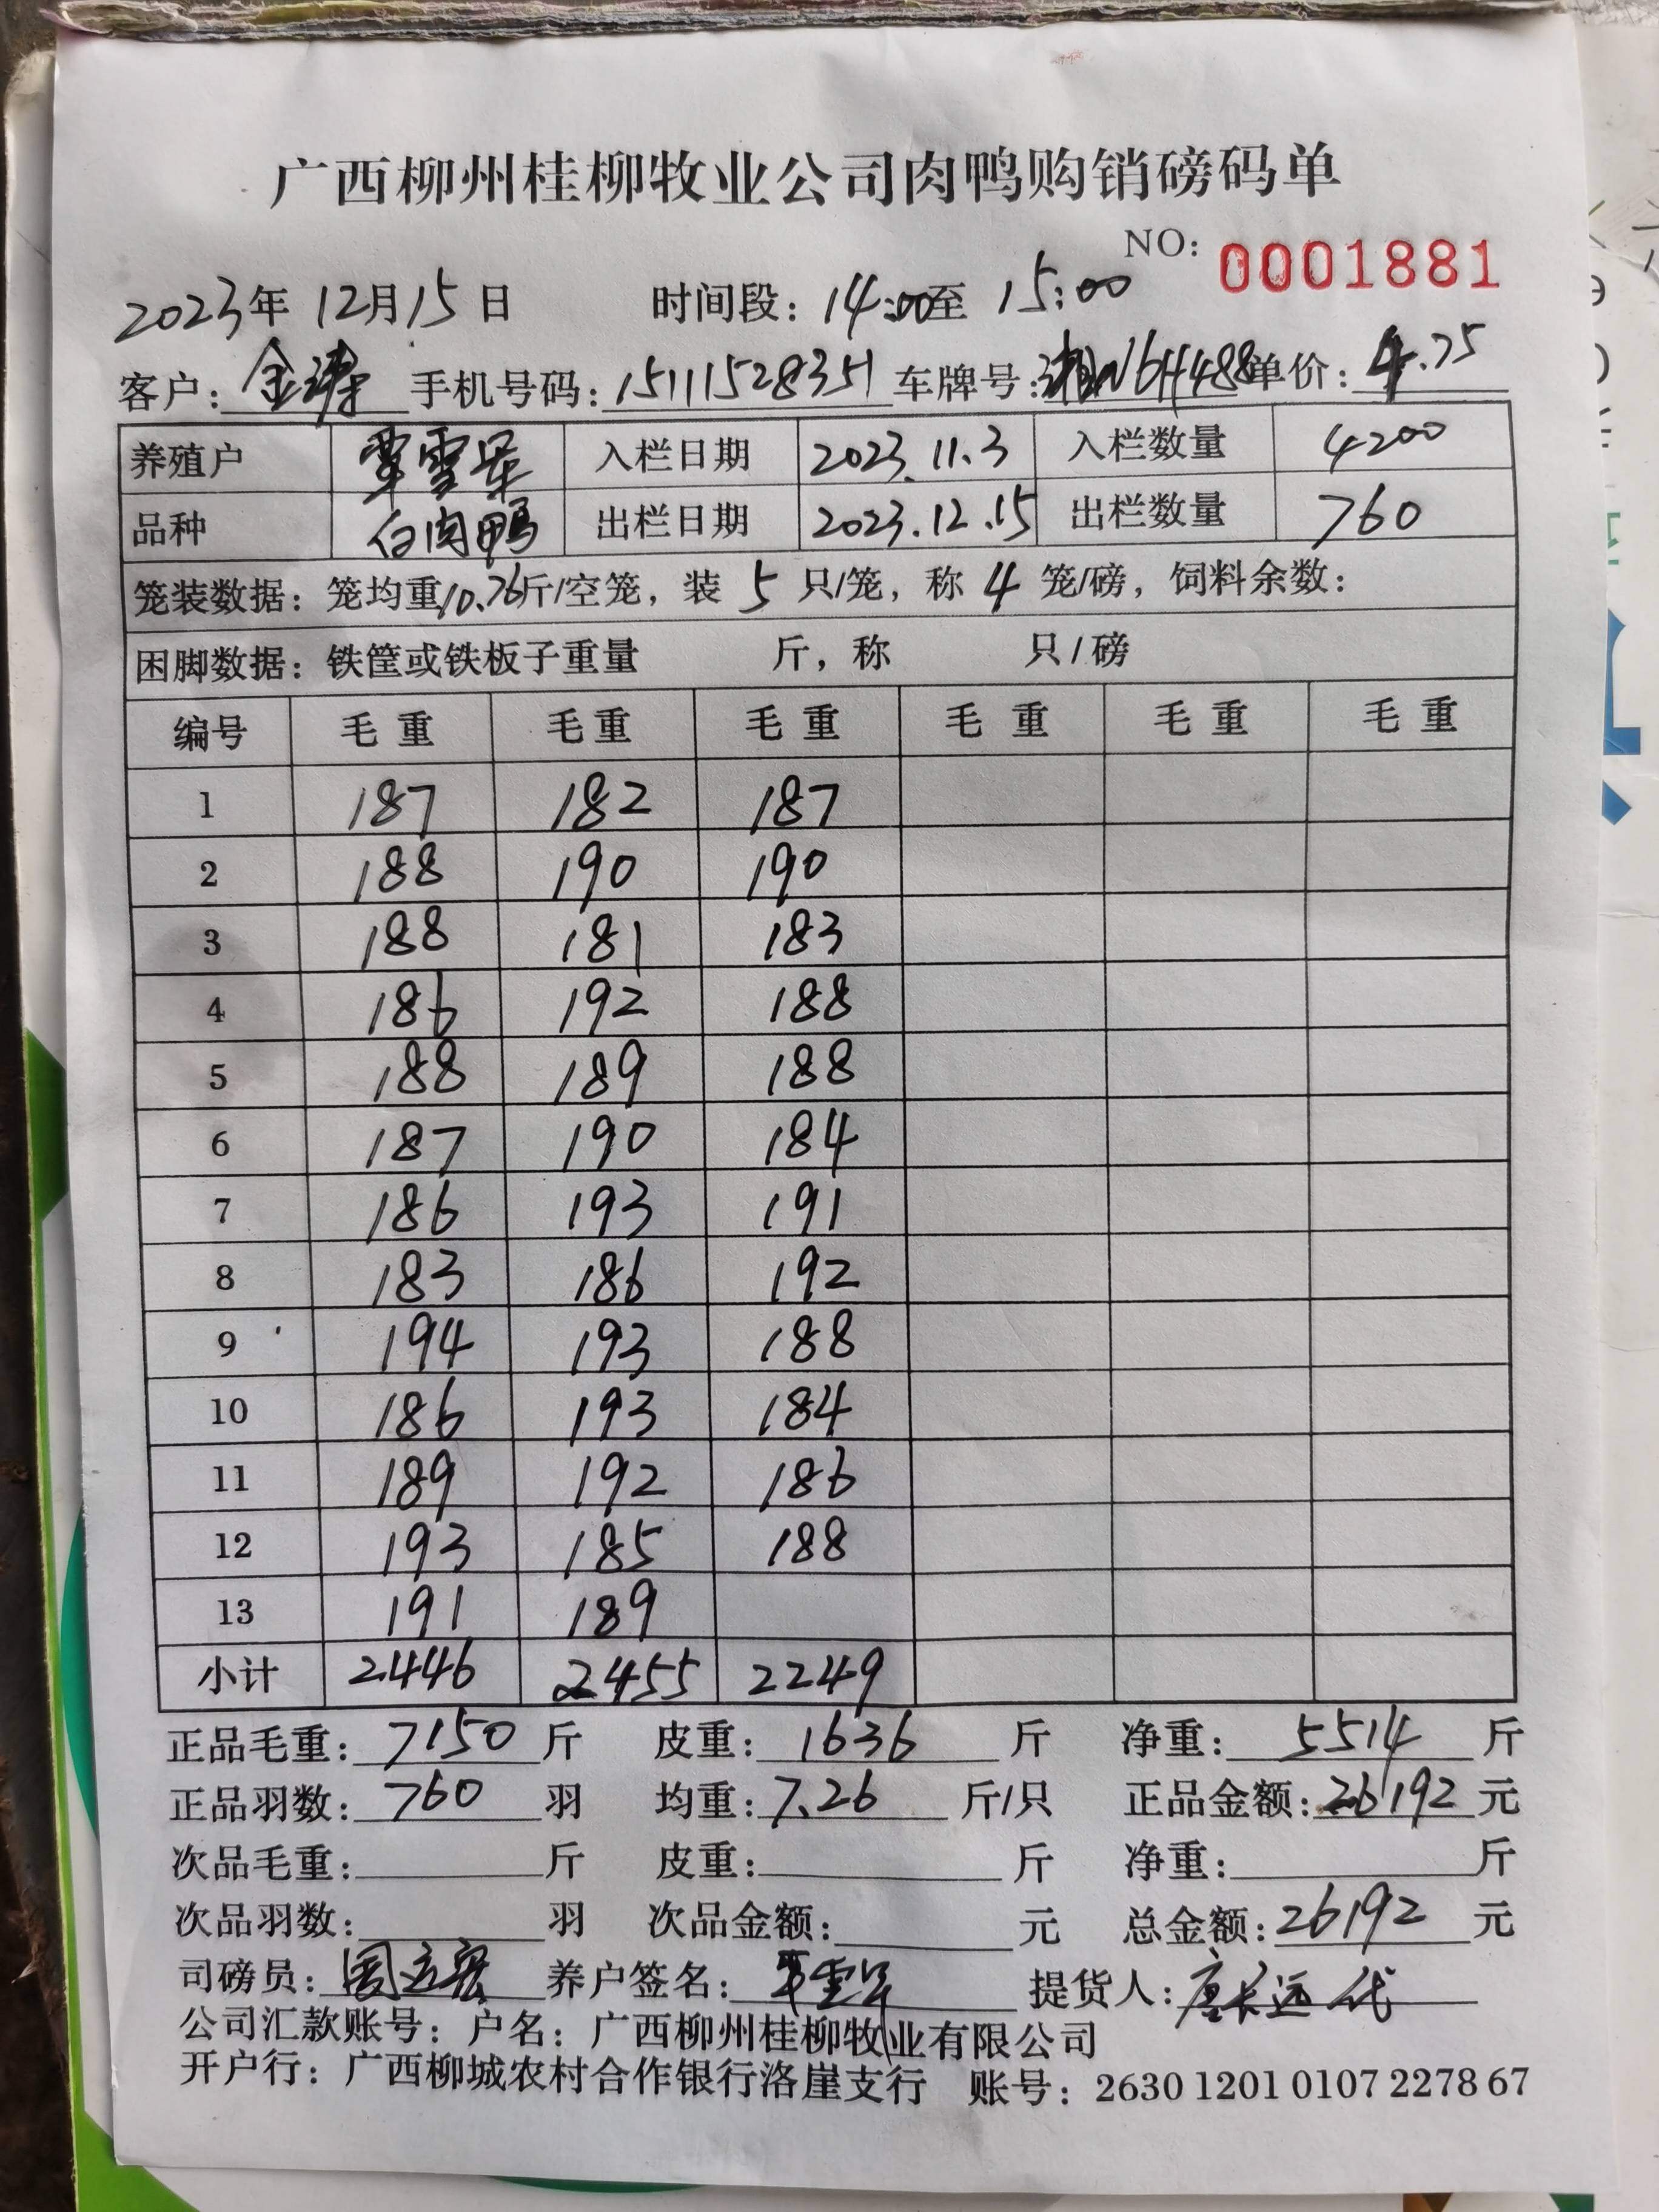 广西柳州桂柳牧业公司肉鸭购销磅码单
NO: 0001881
2023年 12月 15日 时间段: 14:00至 15:00
客户: 金 手机号码: 15111528351 车牌号: 单价: 4.75
养殖户 覃雪 入栏日期 2023.11.3 入栏数量 4200
品种 白肉鸭 出栏日期 2023.12.15 出栏数量 760
笼装数据: 笼均重10.76斤/空笼, 装 5 只/笼, 称 4 笼/磅, 饲料余数:
困脚数据: 铁筐或铁板子重量 斤, 称 只/磅
编号 毛重 毛重 毛重 毛重 毛重 毛重
1 187 182 187
2 188 190 190
3 188 181 183
4 186 192 188
5 188 189 188
6 187 190 184
7 186 193 191
8 183 186 192
9 194 193 188
10 186 193 184
11 189 192 186
12 193 185 188
13 191 189
小计 2446 2455 2249
正品毛重: 7150 斤 皮重: 1636 斤 净重: 5514 斤
正品羽数: 760 羽 均重: 7.26 斤/只 正品金额: 26192 元
次品毛重: 斤 皮重: 斤 净重: 斤
次品羽数: 羽 次品金额: 元 总金额: 26192 元
司磅员: 养户签名: 提货人: 唐长远 代
公司汇款账号: 户名: 广西柳州桂柳牧业有限公司
开户行: 广西柳城农村合作银行洛崖支行 账号: 2630 1201 0107 2278 67